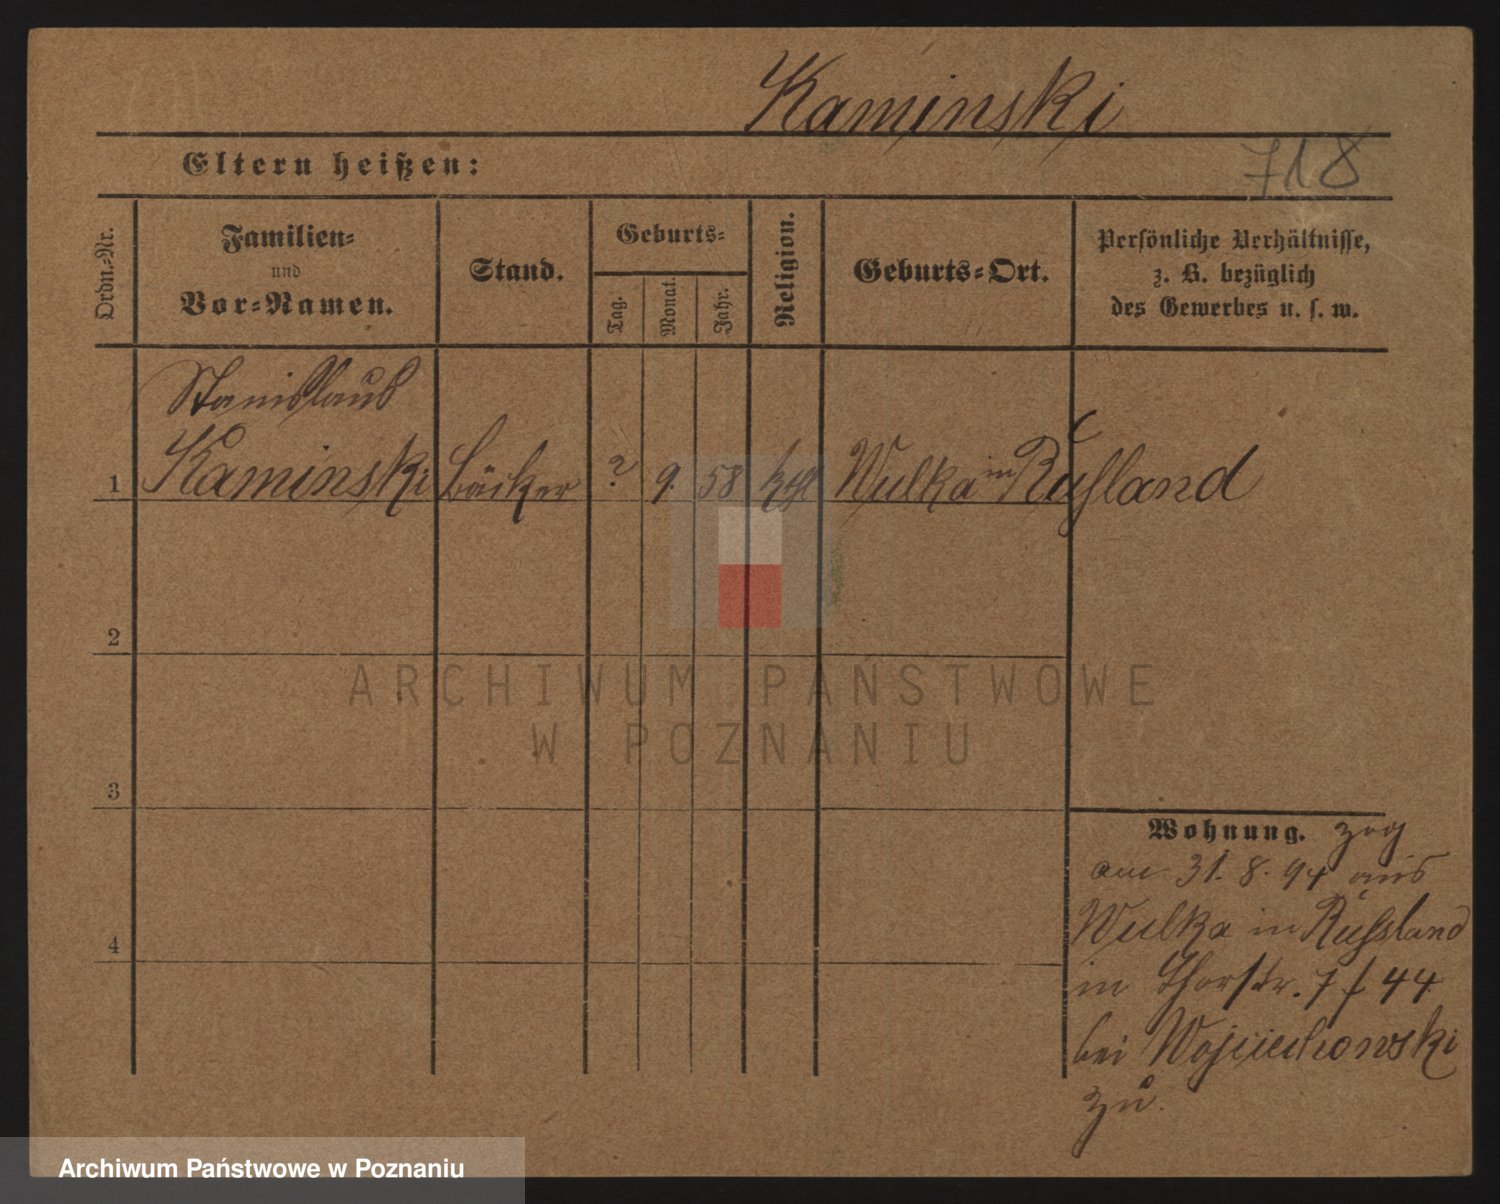 Kaminski
Eltern heißen:
718
Ordn.-Nr.
Familien-
und
Vor-Namen.
Stand.
Geburts-
Tag.
Monat.
Jahr.
Religion.
Geburts-Ort.
Persönliche Verhältnisse,
z. B. bezüglich
des Gewerbes u. s. w.
Stanislaus
1 Kaminski Bäcker ? 9. 58 kath Wulka in Rußland
2
ARCHIWUM PAŃSTWOWE
W POZNANIU
3
Wohnung. zog
am 31. 8. 94 aus
4
Wulka in Russland
in Thorstr. 7 f 44
bei Wojciechowski
zu.
Archiwum Państwowe w Poznaniu